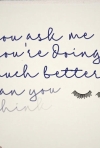 ou ask me
ou're doing
uch better
an you
hink